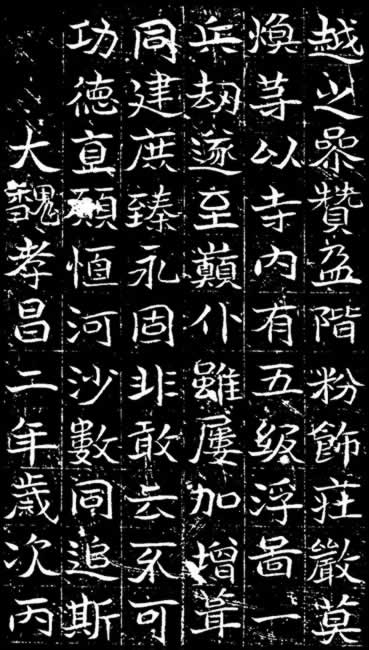 越之叅贊盈階粉飾莊嚴莫
煥等以寺内有五級浮啚一
兵刼遂至巔仆雖屢加增葺
同建庶臻永固非敢云不可
功德直願恒河沙數同追斯
大魏孝昌二年歲次丙